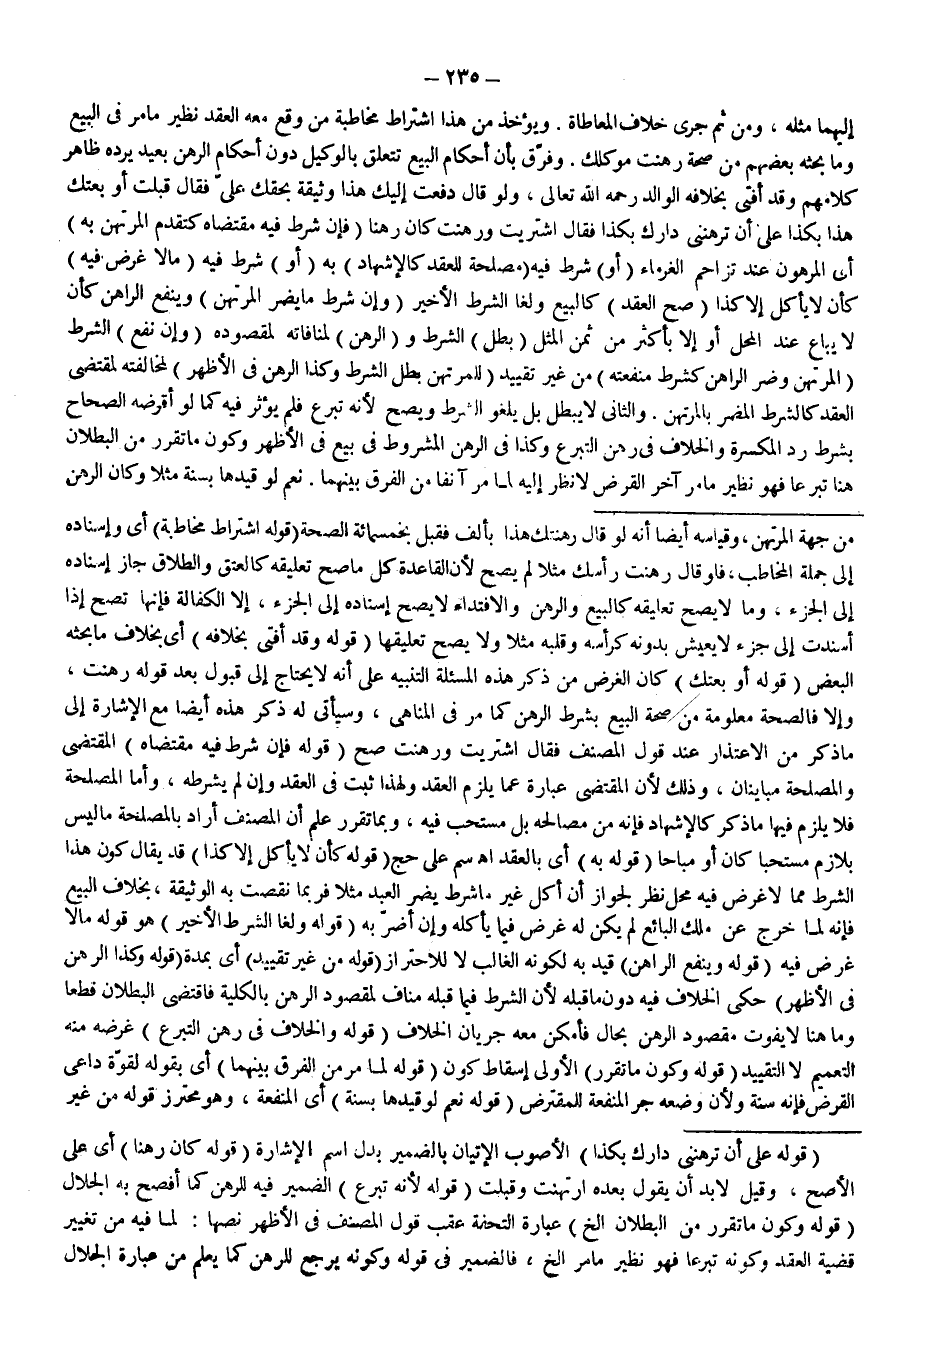 – ٢٣٥ –
إليهما مثله ، ومن ثم جرى خلاف المعاطاة . ويؤخذ من هذا اشتراط مخاطبة من وقع معه العقد نظير مامر فى البيع
وما بحثه بعضهم من صحة رهنت موكلك . وفرّق بأن أحكام البيع تتعلق بالوكيل دون أحكام الرهن بعيد يرده ظاهر
كلامهم وقد أفتى بخلافه الوالد رحمه الله تعالى ، ولو قال دفعت إليك هذا وثيقة بحقك علىّ فقال قبلت أو بعتك
هذا بكذا على أن ترهننى دارك بكذا فقال اشتريت ورهنت كان رهنا ( فإن شرط فيه مقتضاه كتقدم المرتهن به )
أى المرهون عند تزاحم الغرماء ( أو ) شرط فيه ( مصلحة للعقد كالإشهاد ) به ( أو ) شرط فيه ( مالا غرض فيه )
كأن لايأكل إلا كذا ( صح العقد ) كالبيع ولغا الشرط الأخير ( وإن شرط مايضر المرتهن ) وينفع الراهن كأن
لا يباع عند المحل أو إلا بأكثر من ثمن المثل ( بطل ) الشرط و ( الرهن ) لمنافاته لمقصوده ( وإن نفع ) الشرط
( المرتهن وضر الراهن كشرط منفعته ) من غير تقييد ( للمرتهن بطل الشرط وكذا الرهن فى الأظهر ) لمخالفته لمقتضى
العقد كالشرط المضر بالمرتهن . والثانى لايبطل بل يلغو الشرط ويصح لأنه تبرع فلم يؤثر فيه كما لو أقرضه الصحاح
بشرط رد المكسرة والخلاف فى رهن التبرع وكذا فى الرهن المشروط فى بيع فى الأظهر وكون ماتقرر من البطلان
هنا تبرعا فهو نظير مامر آخر القرض لانظر إليه لما مر آنفا من الفرق بينهما . نعم لو قيدها بسنة مثلا وكان الرهن
من جهة المرتهن ، وقياسه أيضا أنه لو قال رهنتك هذا بألف فقبل بخمسمائة الصحة ( قوله اشتراط مخاطبة ) أى وإسناده
إلى جملة المخاطب ، فلو قال رهنت رأسك مثلا لم يصح لأن القاعدة كل ماصح تعليقه كالعتق والطلاق جاز إسناده
إلى الجزء ، وما لايصح تعليقه كالبيع والرهن والافتداء لايصح إسناده إلى الجزء ، إلا الكفالة فإنها تصح إذا
أسندت إلى جزء لايعيش بدونه كرأسه وقلبه مثلا ولا يصح تعليقها ( قوله وقد أفتى بخلافه ) أى بخلاف مابحثه
البعض ( قوله أو بعتك ) كان الغرض من ذكر هذه المسئلة التنبيه على أنه لايحتاج إلى قبول بعد قوله رهنت ،
وإلا فالصحة معلومة من صحة البيع بشرط الرهن كما مر فى المناهى ، وسيأتى له ذكر هذه أيضا مع الإشارة إلى
ماذكر من الاعتذار عند قول المصنف فقال اشتريت ورهنت صح ( قوله فإن شرط فيه مقتضاه ) المقتضى
والمصلحة مباينان ، وذلك لأن المقتضى عبارة عما يلزم العقد ولهذا ثبت فى العقد وإن لم يشرطه ، وأما المصلحة
فلا يلزم فيها ماذكر كالإشهاد فإنه من مصالحه بل مستحب فيه ، وبماتقرر علم أن المصنف أراد بالمصلحة ماليس
بلازم مستحبا كان أو مباحا ( قوله به ) أى بالعقد اه سم على حج ( قوله كأن لايأكل إلا كذا ) قد يقال كون هذا
الشرط مما لاغرض فيه محل نظر لجواز أن أكل غير ماشرط يضر العبد مثلا فربما نقصت به الوثيقة ، بخلاف البيع
فإنه لما خرج عن ملك البائع لم يكن له غرض فيما يأكله وإن أضرّ به ( قوله ولغا الشرط الأخير ) هو قوله مالا
غرض فيه ( قوله وينفع الراهن ) قيد به لكونه الغالب لا للاحتراز ( قوله من غير تقييد ) أى بمدة ( قوله وكذا الرهن
فى الأظهر ) حكى الخلاف فيه دون ماقبله لأن الشرط فيما قبله مناف لمقصود الرهن بالكلية فاقتضى البطلان قطعا
وما هنا لايفوت مقصود الرهن بحال فأمكن معه جريان الخلاف ( قوله والخلاف فى رهن التبرع ) غرضه منه
التعميم لا التقييد ( قوله وكون ماتقرر ) الأولى إسقاط كون ( قوله لما مر من الفرق بينهما ) أى بقوله لقوّة داعى
القرض فإنه سنة ولأن وضعه جر المنفعة للمقترض ( قوله نعم لو قيدها بسنة ) أى المنفعة ، وهو محترز قوله من غير
( قوله على أن ترهننى دارك بكذا ) الأصوب الإتيان بالضمير بدل اسم الإشارة ( قوله كان رهنا ) أى على
الأصح ، وقيل لابد أن يقول بعده ارتهنت وقبلت ( قوله لأنه تبرع ) الضمير فيه للرهن كما أفصح به الجلال
( قوله وكون ماتقرر من البطلان الخ ) عبارة التحفة عقب قول المصنف فى الأظهر نصها : لما فيه من تغيير
قضية العقد وكونه تبرعا فهو نظير مامر الخ ، فالضمير فى قوله وكونه يرجع للرهن كما يعلم من عبارة الجلال